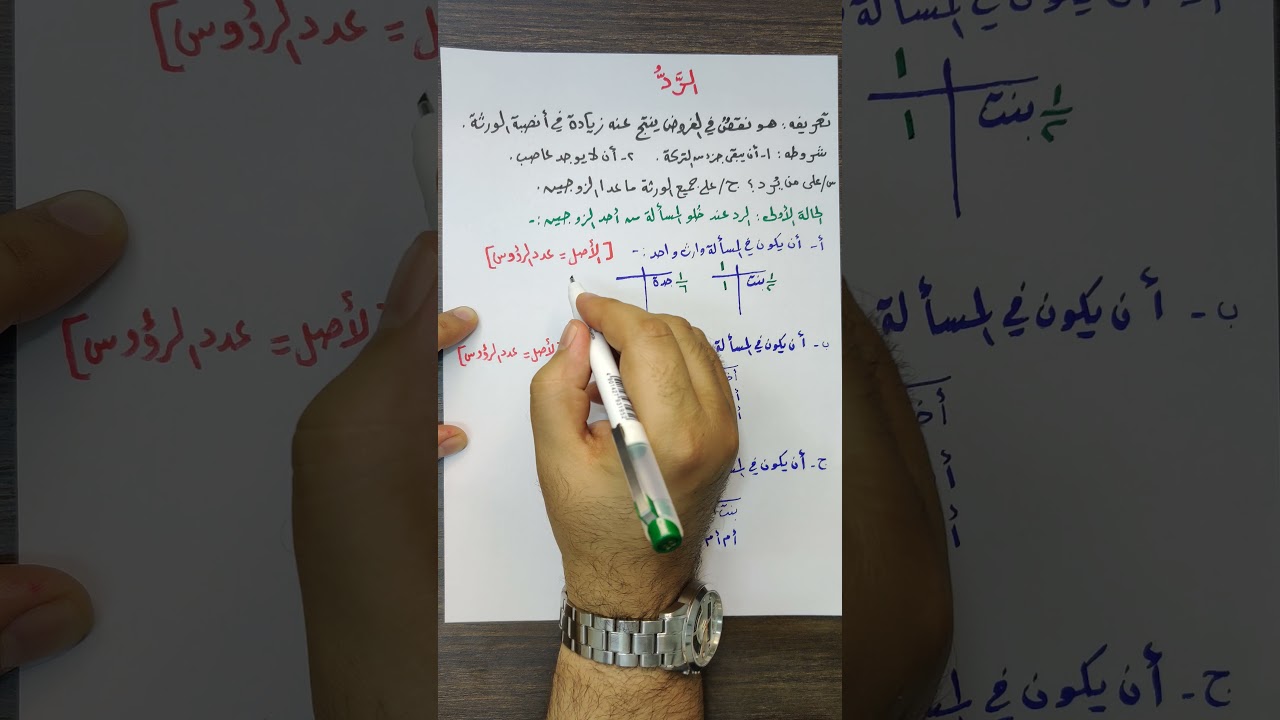 الرَّدُّ
تعريفه: هو نقصٌ في الفروض ينتج عنه زيادة في أنصبة الورثة.
شروطه: ١- أن يبقى جزء من التركة. ٢- أن لا يوجد عاصب.
س/ على من يُرد؟ ج/ على جميع الورثة ما عدا الزوجين.
الحالة الأولى: الرد عند خُلو المسألة من أحد الزوجين :-
أ- أن يكون في المسألة وارث واحد :- [الأصل = عدد الرؤوس]
١
١/٢ بنت ١
١/٦ جدة
ب- أن يكون في المسألة الأصل = عدد الرؤوس]
ج- أن يكون في المسألة
بنت
أم أم